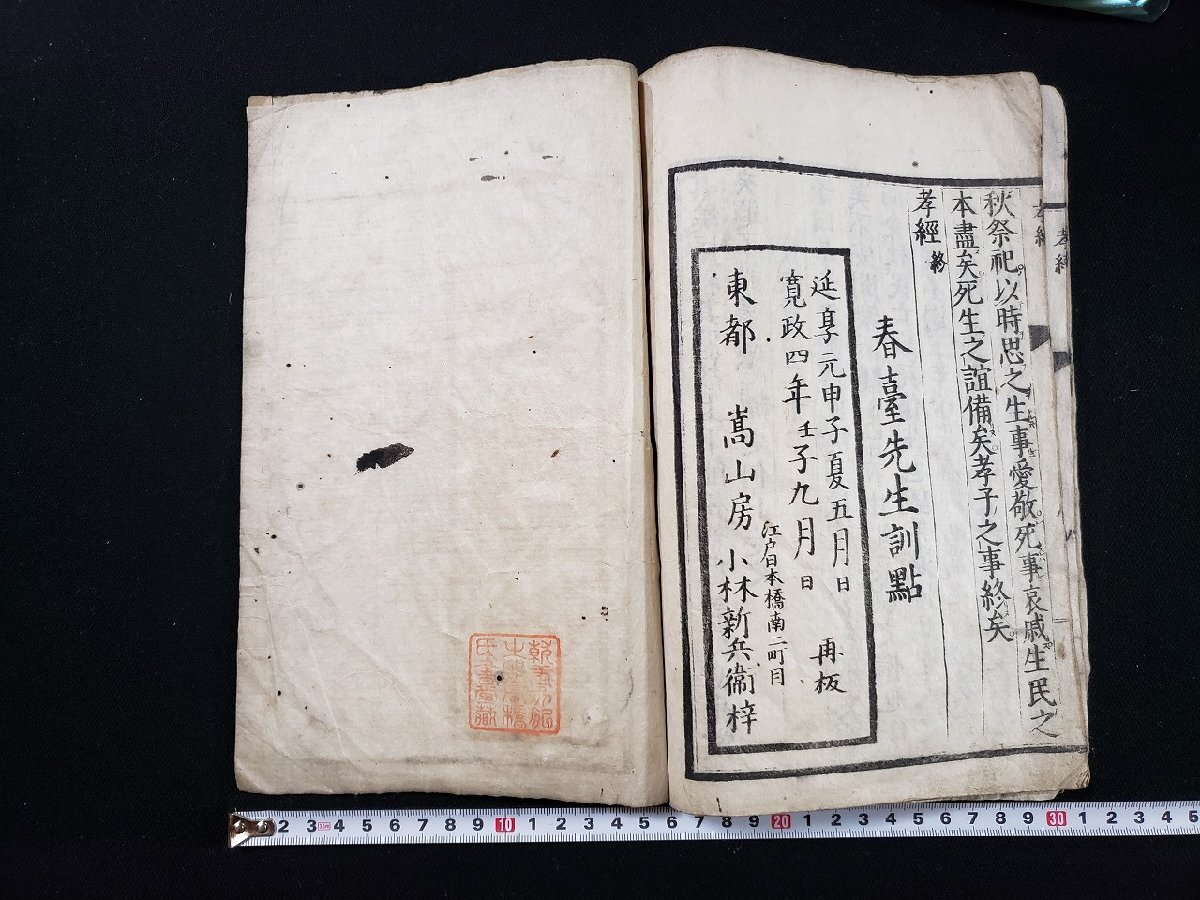 秋祭祀以時思之生事愛敬死事哀戚生民之
本盡矣死生之誼備矣孝子之事終矣
孝經 終
春臺先生訓點
延享元甲子夏五月日 再板
寬政四年壬子九月日
江戸日本橋南二町目
東都 嵩山房 小林新兵衞梓
孝經
2 3 4 5 6 7 8 9 10 1 2 3 4 5 6 7 8 9 20 1 2 3 4 5 6 7 8 9 30 1 2 3 4 5